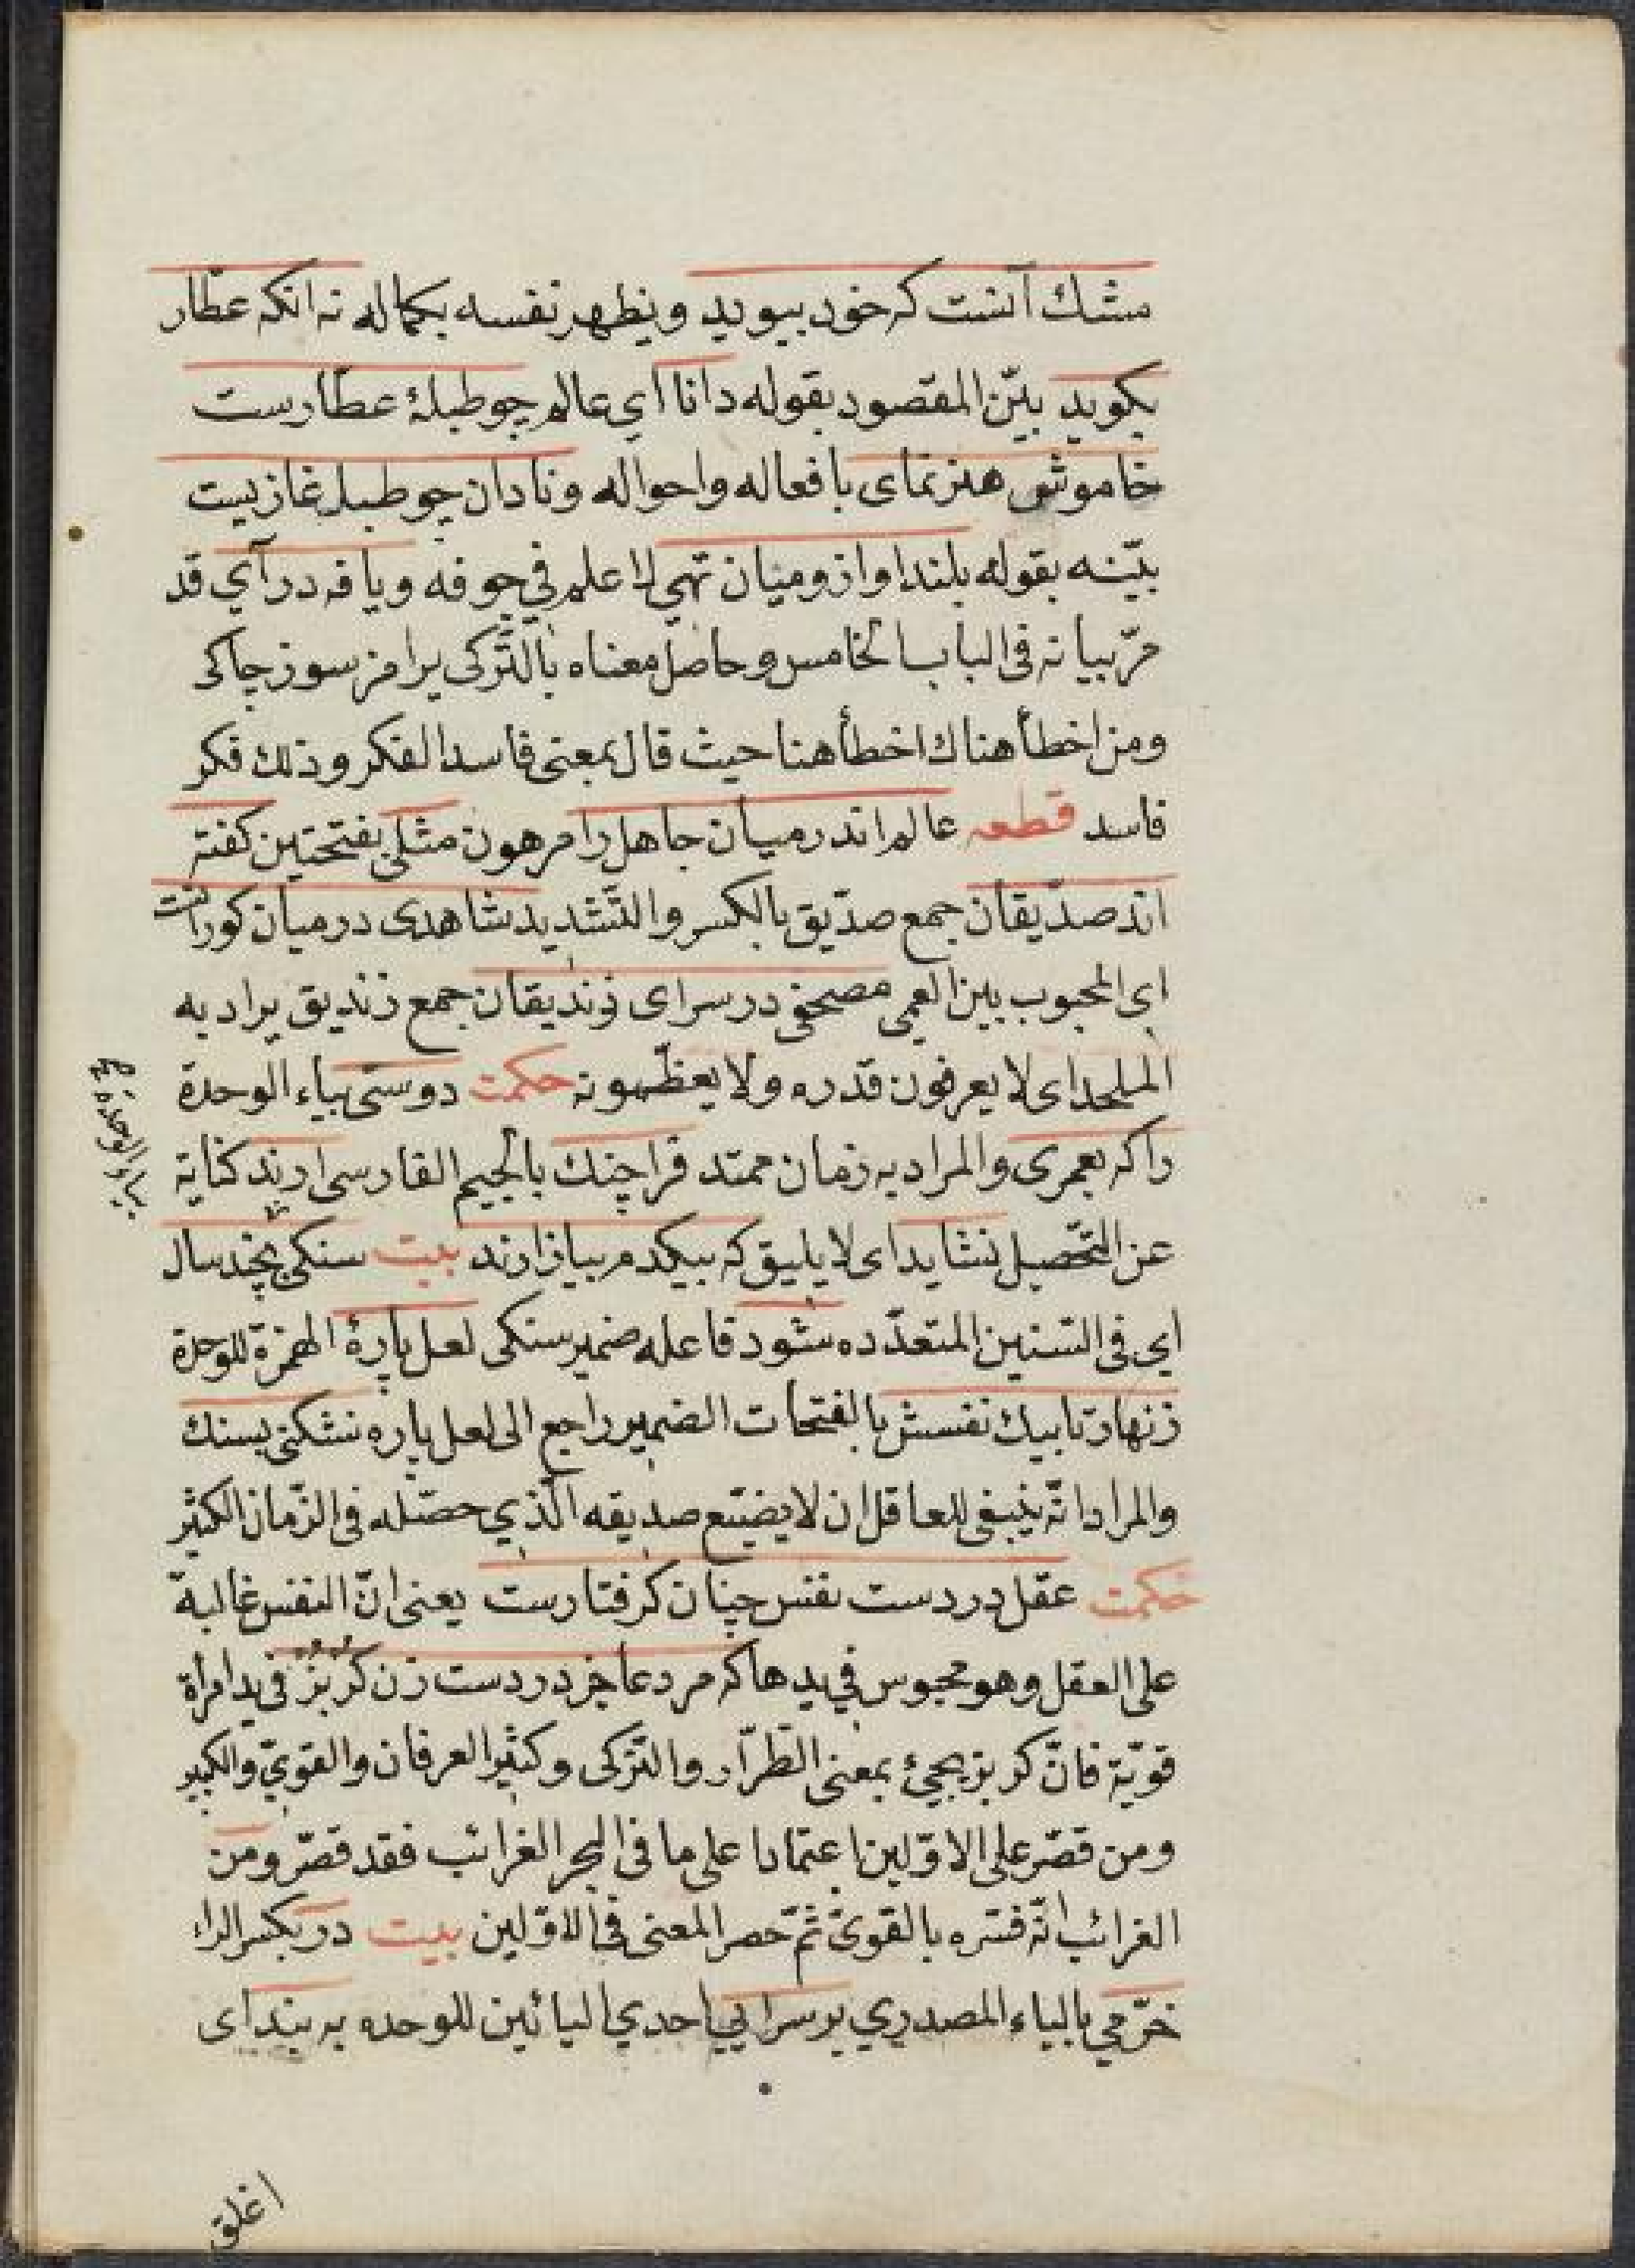 مشك آنست كه خود ببويد ويظهر نفسه بكماله نه انكه عطّار
بكويد بيّن المقصود بقوله دانا اي عالم چو طبلۀ عطّارست
خاموش هنرنماى بافعاله واحواله ونادان چو طبل غازيست
بيّنه بقوله بلنداواز وميان تهي لا علم في جوفه ويافه درآي قد
مرّ بيانه فى الباب الخامس وحاصل معناه بالتّركى يرامز سوز چاكى
ومن اخطأ هناك اخطأ هنا حيث قال بمعنى فاسد الفكر وذلك فكر
فاسد قطعه عالم اندر ميان جاهل را مرهون مثلى بفتحتين كفته
اند صدّيقان جمع صدّيق بالكسر والتّشديد شاهدى درميان كورانست
اى المحبوب بين العمي مصحفى در سراى زنديقان جمع زنديق يراد به
الملحد اى لا يعرفون قدره ولا يعظّمونه حكمت دوستى بياء الوحدة
را كه بعمرى والمراد به زمان ممتد فراچنك بالجيم الفارسى ارند كناية
عن التّحصيل نشايد اى لا يليق كه بيكدم بيازارند بيت سنكى بچند سال
اي فى السّنين المتعدّده شود فاعله ضمير سنكى لعل پارۀ الهمزة للوحدة
زنهار تا بيك نفسش بالفتحات الضمير راجع الى لعل پاره نشكنى بسنك
والمراد انّه ينبغى للعاقل ان لا يضيّع صديقه الّذي حصّله فى الزّمان الكثير
حكمت عقل در دست نفس چنان كرفتارست يعنى انّ النفس غالبة
على العقل وهو محبوس في يدها كه مرد عاجز در دست زن كربز فى يد امرأة
قويّة فانّ كربز يجئ بمعنى الطّرّار والتّركى وكثير العرفان والقويّ والكبير
ومن قصّر على الاوّلين اعتمادا على ما فى البحر الغرائب فقد قصّر ومن
الغرائب انّه فسّره بالقوىّ ثمّ حصر المعنى فى الاوّلين بيت در بكسر الراء
خرّمي بالياء المصدري بر سرايي احدي اليائين للوحده به بند اى
بياء الوحدة
اغلق